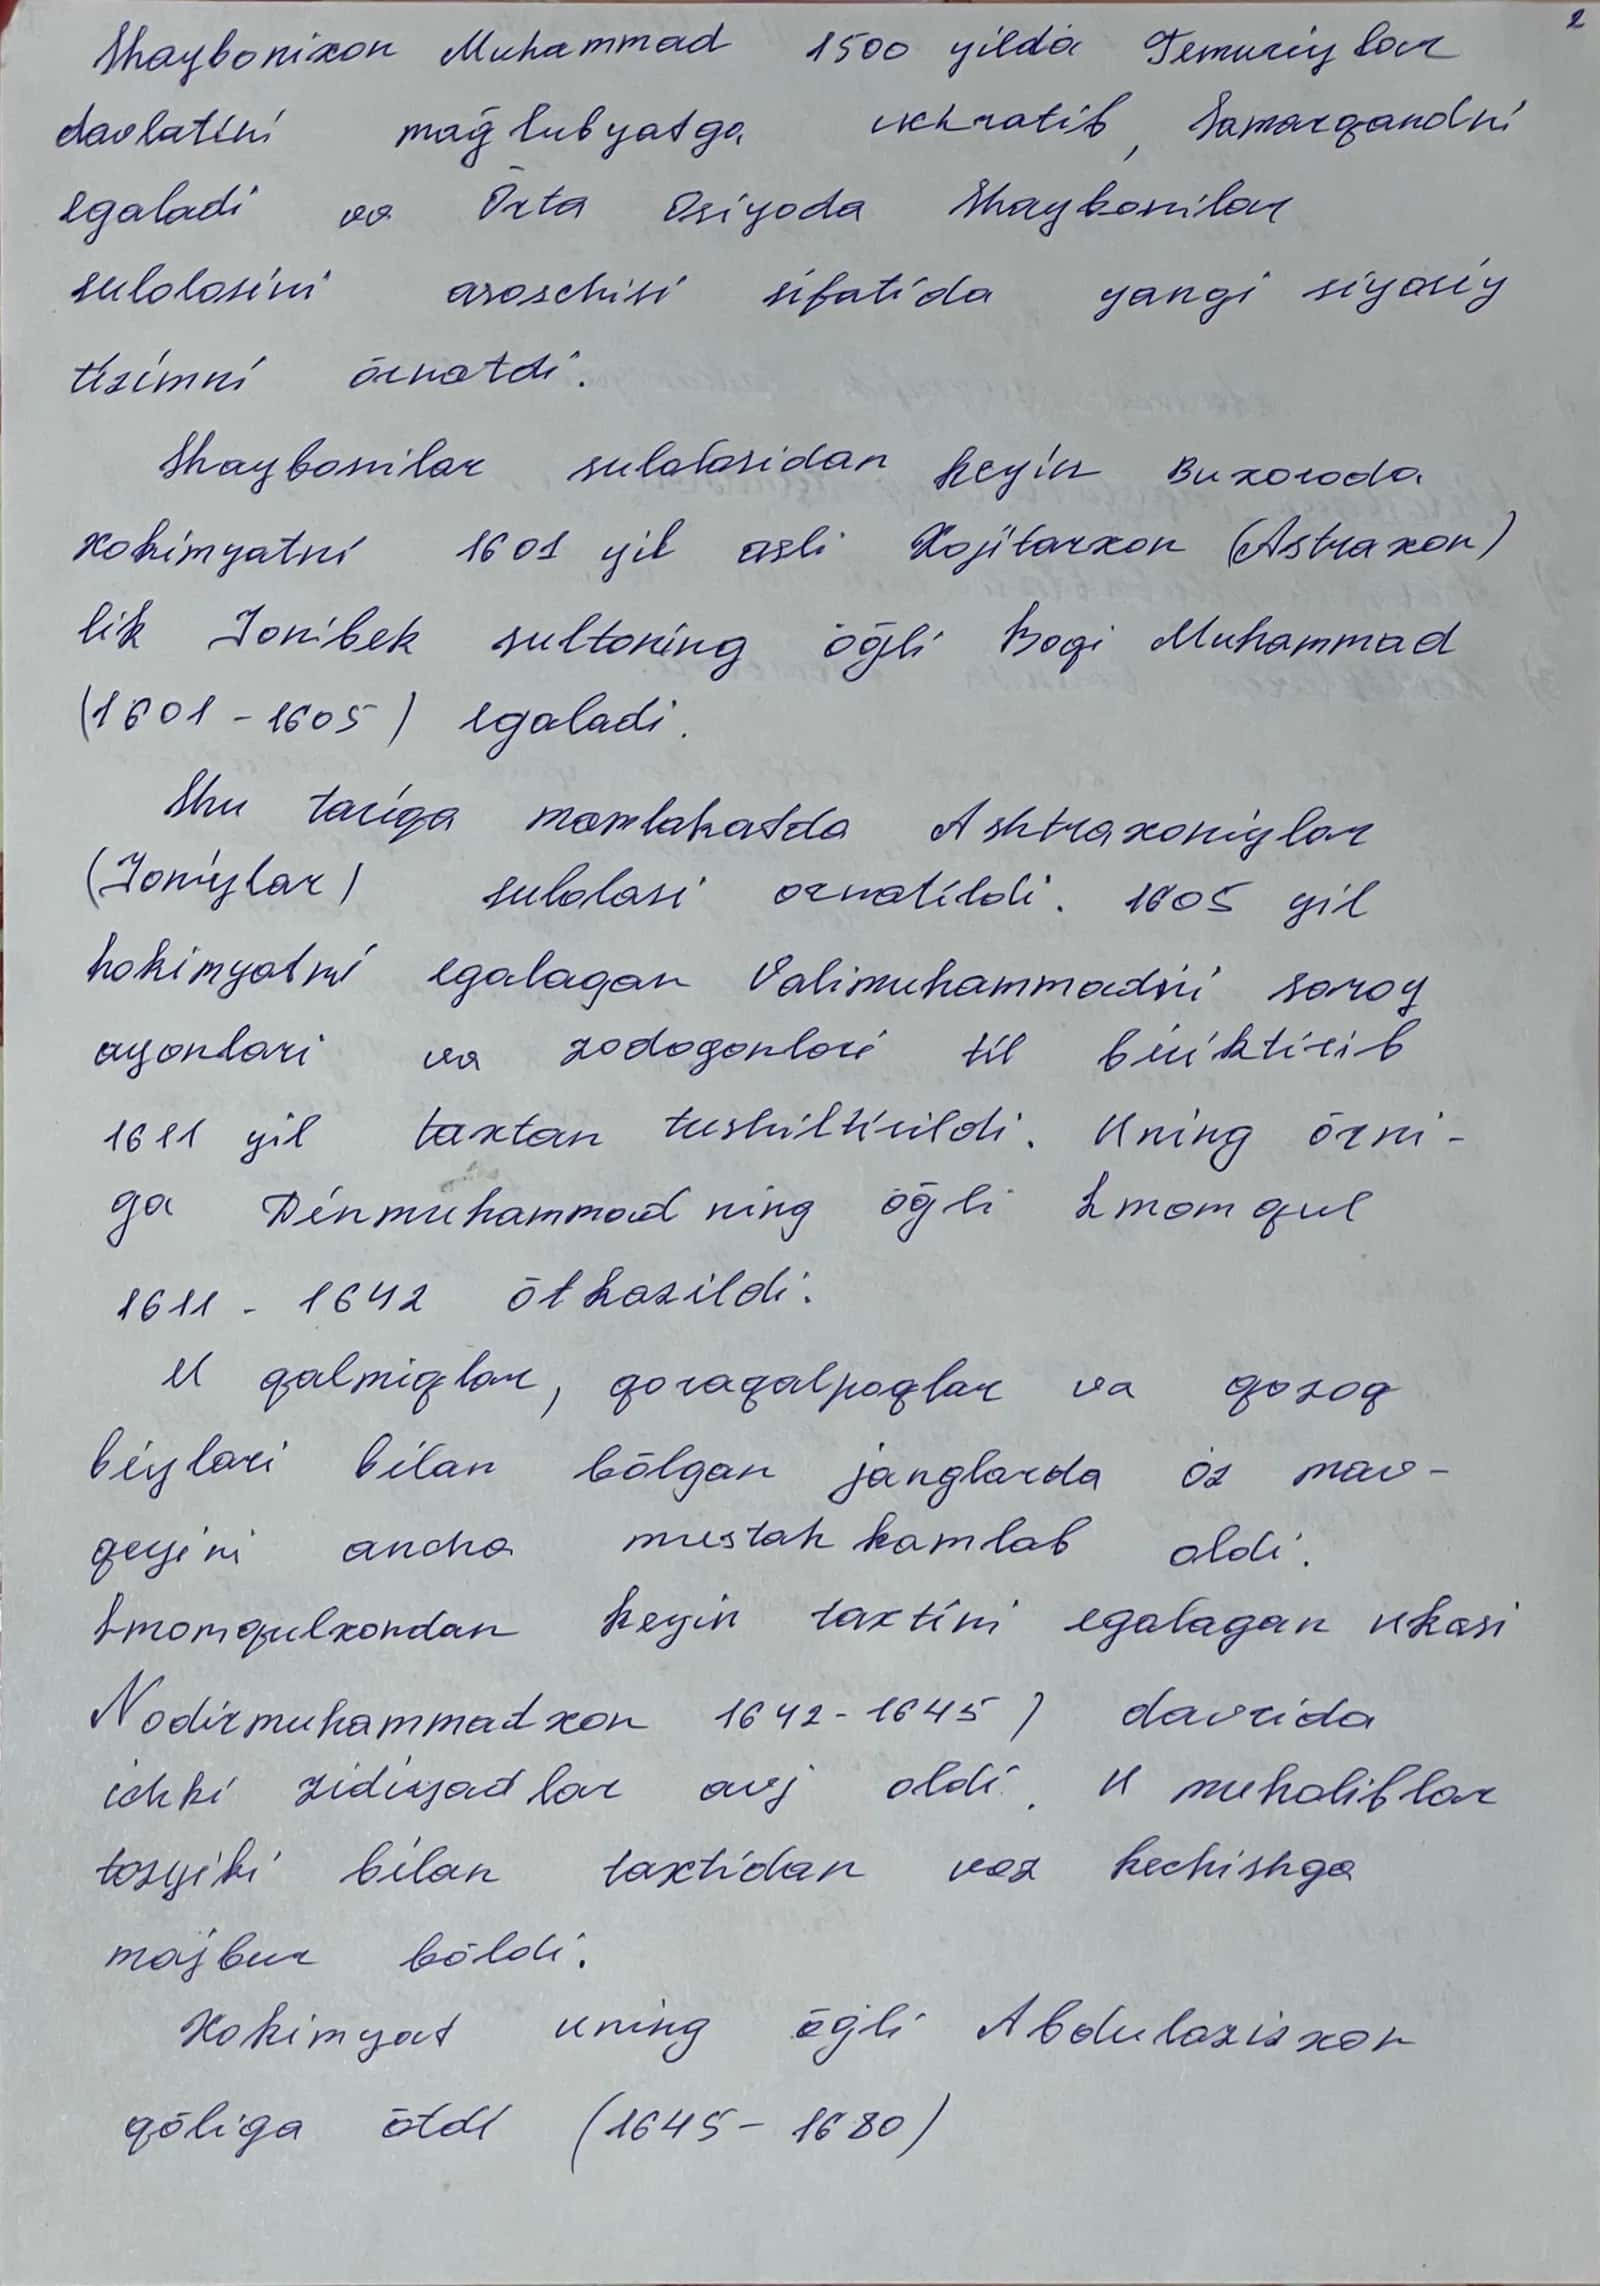 2
Shaybonixon Muhammad 1500 yilda Temuriylar
davlatini mağlubyatga uchratib, Samarqandni
egaladi va Ōrta Osiyoda Shaybonilar
sulolosini asoschisi sifatida yangi siyosiy
tizimni ōrnatdi.
Shaybonilar sulolasidan keyin Buxoroda
xokimyatni 1601 yil asli Xojitarxon (Astraxon)
lik Jonibek sultoning ōğli Boqi Muhammad
(1601 - 1605) egaladi.
Shu tariqa mamlakatda Ashtraxoniylar
(Joniylar) sulolasi ornatildi. 1605 yil
hokimyatni egalagan Valimuhammadni saroy
ayonlari va zodogonlari til biriktirib
1611 yil taxtan tushiltirildi. Uning ōrni-
ga Dinmuhammadning ōğli Imomqul
1611 - 1642 ōtkazildi.
U qalmiqlar, qoraqalpoqlar va qozoq
biylari bilan bōlgan janglarda öz mav-
qeyini ancha mustahkamlab oldi.
Imomqulxondan keyin taxtini egalagan ukasi
Nodirmuhammadxon 1642-1645) davrida
ichki zidiyadlar avj oldi. U muholiflar
tozyiki bilan taxtidan voz kechishga
majbur bōldi.
Xokimyat uning ōğli Abdulazizxon
qōliga ōtdi (1645 - 1680)